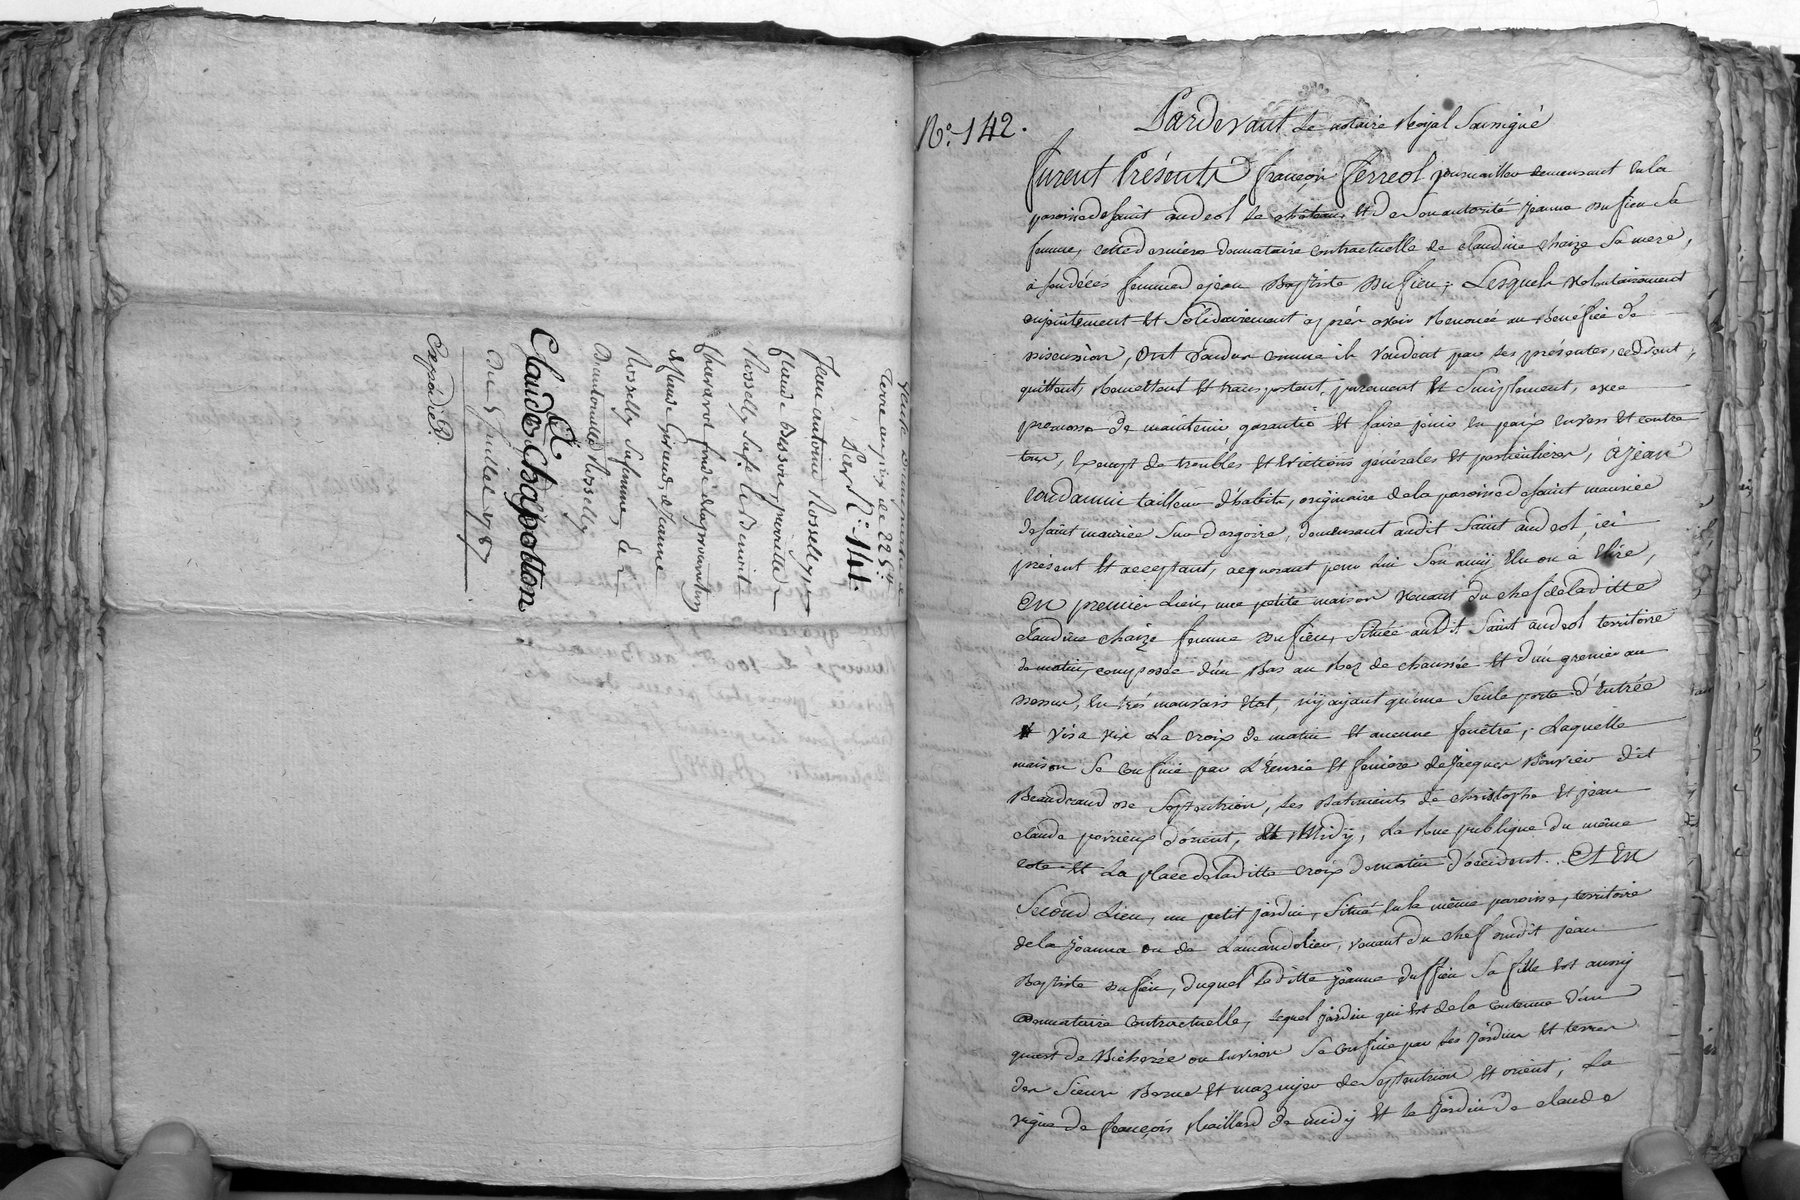 Vente d'une partie de
terre au prix de 225 lt
Par N.º 141.
Jean antoine Rosselly
Claude Bessoire
Rosselly
fond de la procuration
de Claude Giraud, Jeanne
Rosselly sa femme, &
Rosselly
Et
Claude Chapotton
Du 5 Juillet 1787
Expédié
N.º 142.
Pardevant Le notaire Royal Soussigné
furent Présents françois ferreol journaillier demeurant en la
paroisse de saint andeol le château, Et de son autorité jeanne Dufieu sa
femme, cette derniere donnataire contractuelle de claudine chaize sa mere,
à son décès femme de jean Baptiste Dufieu; Lesquels volontairement
conjointement Et Solidairement après avoir Renoncé au Bénéfice de
discussion, ont vendu comme ils vendent par les présentes, cèdent,
quittent, Remettent Et transportent, purement Et Simplement, avec
promesse de maintenir garantir Et faire jouir en paix envers Et contre
tous, Exempt de troubles Et Evictions générales Et particulieres, à jean
condamin tailleur d'habits, originaire de la paroisse de saint maurice
de saint maurice Sur dargoire, demeurant audit Saint andeol, ici
présent Et acceptant, acquerant pour lui Son amy Elu ou à Elire,
En premier Lieu, une petite maison venant du chef de laditte
claudine chaize femme Dufieu, Située audit Saint andeol territoire
de matin, composée d'un Bas au Rez de chaussée Et d'un grenier au
dessus, En très mauvais Etat, n'y ayant qu'une Seule porte d'Entrée
vis a vis La croix de matin Et aucune fenêtre; Laquelle
maison Se confine par L'Ecurie Et feniere de Jacques Bouvier dit
Beaucraud de Septentrion, les Batiments de christophe Et jean
claude perrieux d'orient, Et Midy, La Rue publique du même
coté Et La place de laditte croix de matin d'occident. Et En
Second Lieu, un petit jardin, Situé En la même paroisse, territoire
de la Jeanna ou de Lamandolier, venant du chef dudit jean
Baptiste Dufieu, duquel laditte jeanne duffieu Sa fille Est aussy
donnataire contractuelle, lequel jardin qui Est de la contenue d'un
quart de Bicherée ou Environ Se confine par Les jardin Et terres
des Sieurs Berne Et mazuyer de Septentrion Et orient; La
vigne de françois Maillard de midy Et le Jardin de claude